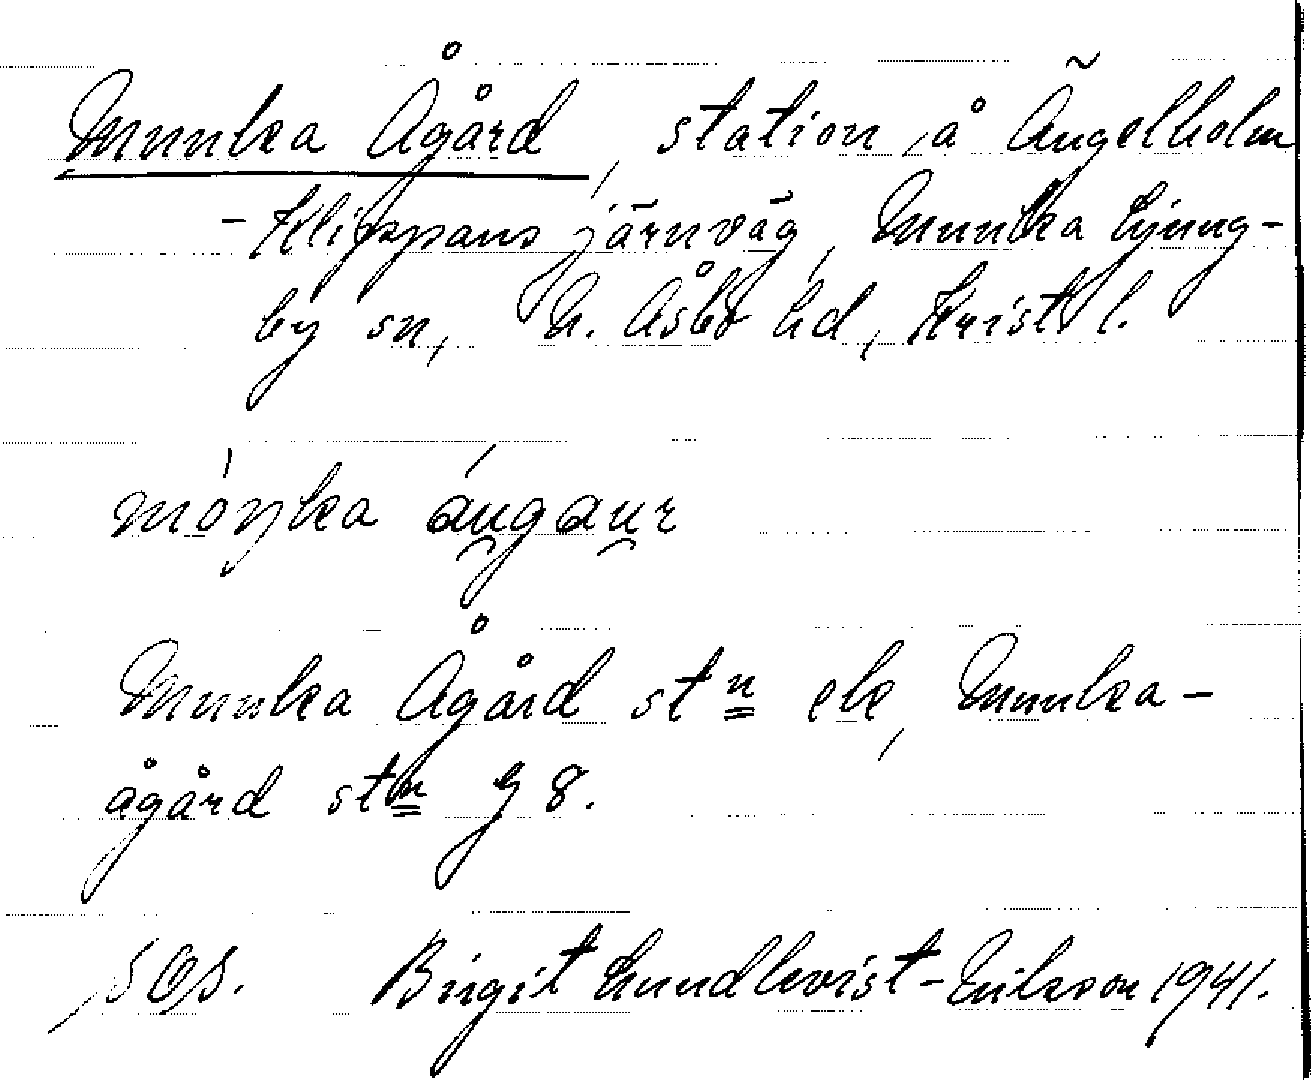 Munka Ågård, station å Ängelholm
- Klippans järnväg, Munka Ljung-
by sn, N. Åsbo hd, Krist. l.
móŋka áu̯gau̯r
Munka Ågård stn ek, Munka-
ågård stn G 8.
SOS. Birgit Lundkvist-Eriksson 1941.